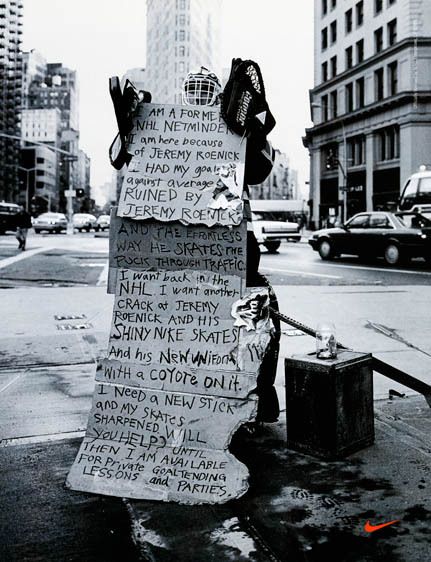 I AM A FORMER
NHL NETMINDER
I am here because
of JEREMY ROENICK
I HAD my goals
against average
RUINED BY
JEREMY ROENICK
AND THE EFFORTLESS
WAY HE SKATES THE
PUCK THROUGH TRAFFIC.
I want back in the
NHL. I want another
CRACK at JEREMY
ROENICK AND HIS
SHINY NIKE SKATES
And his New UNIFORM
with a COYOTE ON IT.
I NEED A NEW STICK
and MY SKATES
SHARPENED. WILL
YOU HELP? UNTIL
THEN I AM AVAILABLE
FOR Private GOALTENDING
LESSONS and PARTIES.